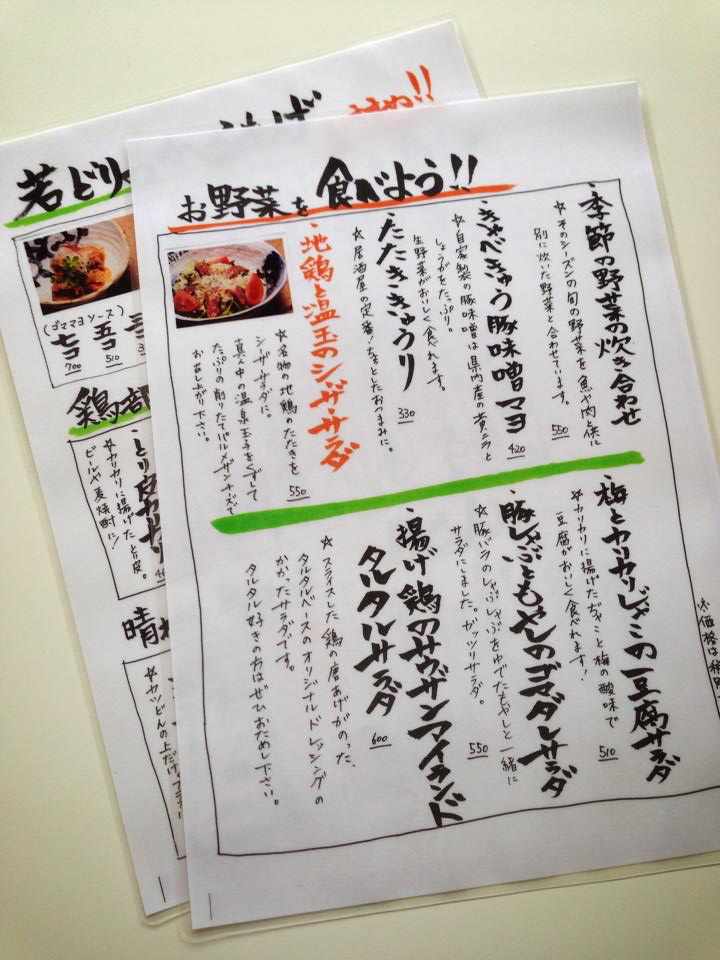 お野菜を食べよう!!
・季節の野菜の炊き合わせ
☆そのシーズンの旬の野菜を魚や肉と供に
別に炊いた野菜と合わせています。
550
・きゃべきゅう豚味噌マヨ
420
☆自家製の豚味噌は県内産の黄ニラと
しょうがをたっぷり。
生野菜がおいしく食べれます。
・たたききゅうり
330
☆居酒屋の定番!ちょっとしたおつまみに。
・地鶏と温玉のシーザーサラダ
550
☆名物の地鶏のたたきを
シーザーサラダに。
真ん中の温泉玉子をくずして
たっぷりの削りたてパルメザンチーズで
お召し上がり下さい。
・梅とカリカリじゃこの豆腐サラダ
510
☆カリカリに揚げたじゃこと梅の酸味で
豆腐がおいしく食べれます!
・豚しゃぶともやしのゴマダレサラダ
550
☆豚バラのしゃぶしゃぶをゆでたもやしと一緒に
サラダにしました。ガッツリサラダ。
・揚げ鶏のサウザンアイランド
タルタルサラダ
600
☆スライスした鶏の唐あげがのった、
タルタルベースのオリジナルドレッシングの
かかったサラダです。
タルタル好きの方はぜひおためし下さい。
※価格は税
若どり
!!
(ゴママヨソース)
七コ
700
五コ
510
三
鶏部
とり皮カリカリ
☆カリカリに揚げたとり皮。
ビールや麦焼酎に!
晴
☆カツどんの上だけ